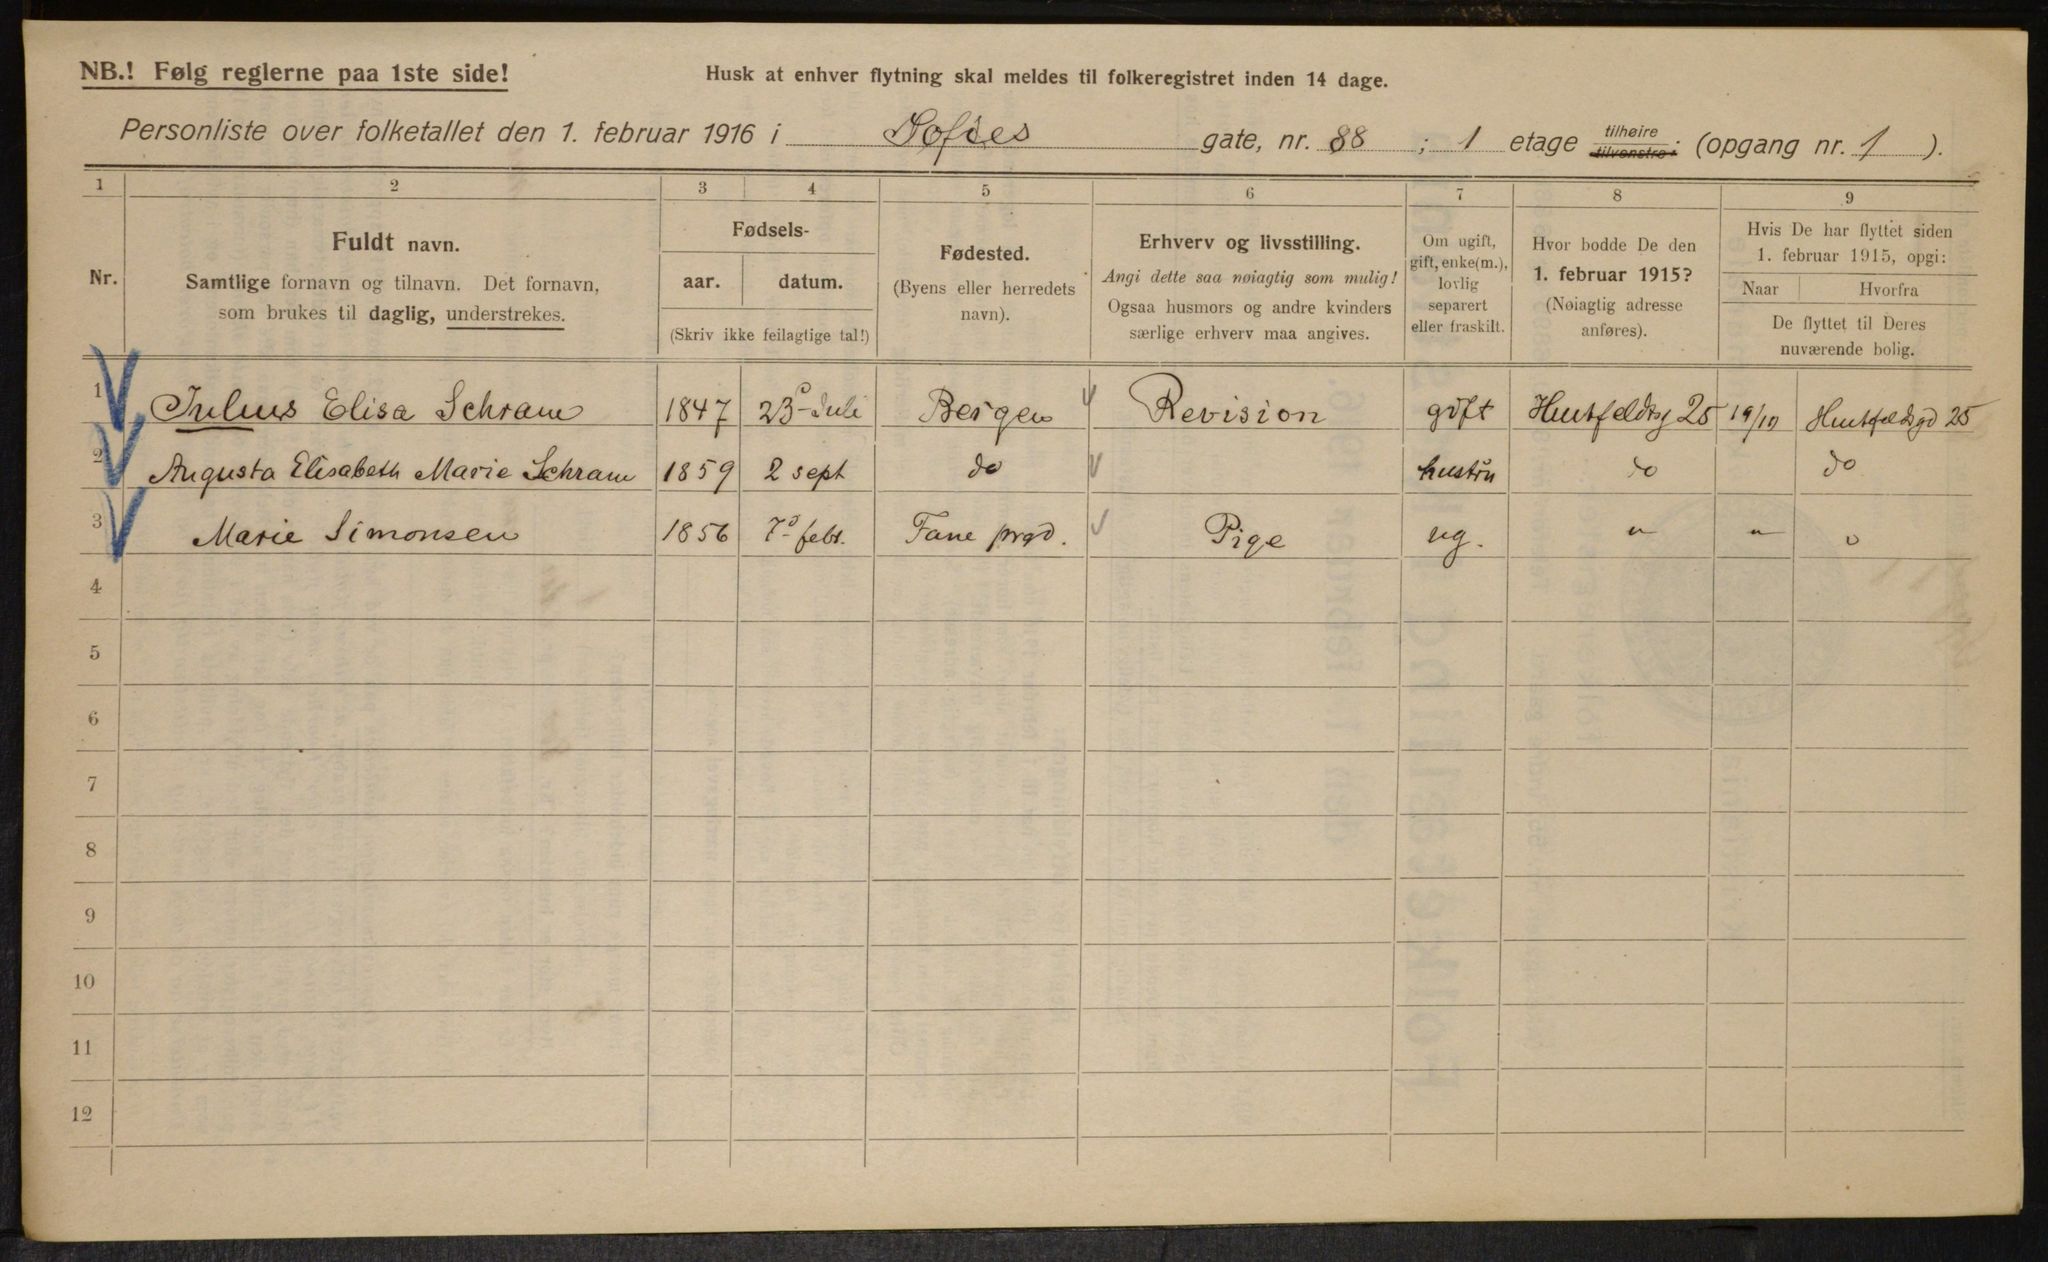 NB.! Følg reglerne paa 1ste side!
Husk at enhver flytning skal meldes til folkeregistret inden 14 dage.
Personliste over folketallet den 1. februar 1916 i Sofies gate, nr. 88 ; 1 etage tilhøire tilvenstre (opgang nr. 1 ).
1 2 3 4 5 6 7 8 9
Nr.
Fuldt navn.
Samtlige fornavn og tilnavn. Det fornavn,
som brukes til daglig, understrekes.
Fødsels-
aar. datum.
(Skriv ikke feilagtige tal!)
Fødested.
(Byens eller herredets
navn).
Erhverv og livsstilling.
Angi dette saa nøiagtig som mulig!
Ogsaa husmors og andre kvinders
særlige erhverv maa angives.
Om ugift,
gift, enke(m.),
lovlig
separert
eller fraskilt.
Hvor bodde De den
1. februar 1915?
(Nøiagtig adresse
anføres).
Hvis De har flyttet siden
1. februar 1915, opgi:
Naar Hvorfra
De flyttet til Deres
nuværende bolig.
1 Julius Elisa Schram 1847 23 Juli Bergen Revision gift Huitfeldtsg 25 19/10 Huitfeldsgd 25
2 Augusta Elisabeth Marie Schram 1859 2 sept do hustru do do
3 Marie Simonsen 1856 7 febr. Fane prgd. Pige ug. " " "
4
5
6
7
8
9
10
11
12